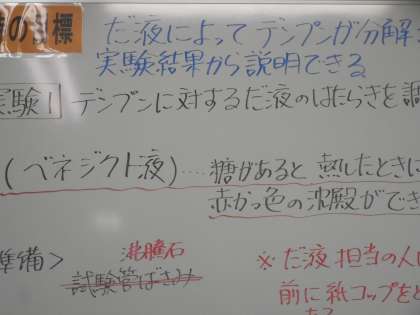 の目標
だ液によってデンプンが分解
実験結果から説明できる
実験1 デンプンに対するだ液のはたらきを調
(ベネジクト液)…糖があると熱したときに
赤かっ色の沈殿ができ
準備>
沸騰石
試験管ばさみ
※だ液担当の人は
前に紙コップをと